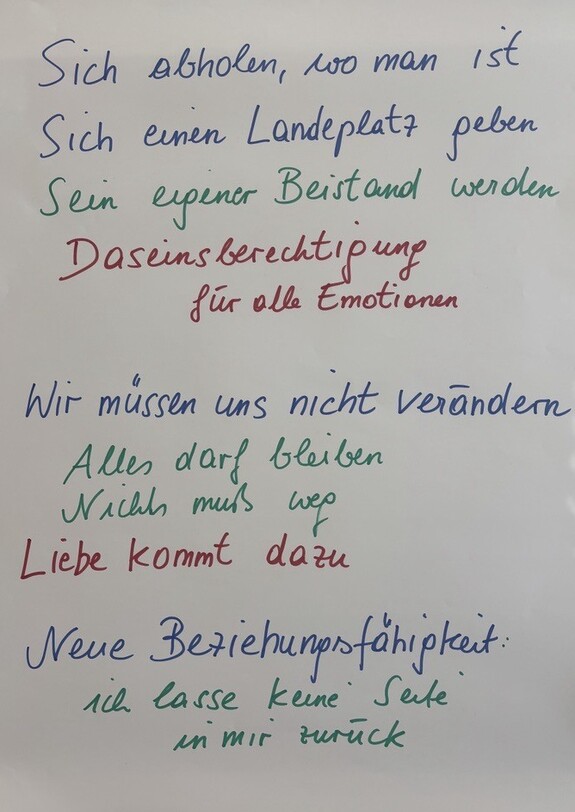 Sich abholen, wo man ist
Sich einen Landeplatz geben
Sein eigener Beistand werden
Daseinsberechtigung
für alle Emotionen
Wir müssen uns nicht verändern
Alles darf bleiben
Nichts muß weg
Liebe kommt dazu
Neue Beziehungsfähigkeit:
ich lasse keine Seite
in mir zurück